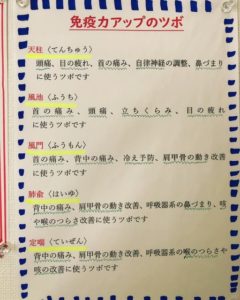 免疫力アップのツボ
天柱〈てんちゅう〉
頭痛、目の疲れ、首の痛み、自律神経の調整、鼻づまり
に使うツボです
風池〈ふうち〉
首の痛み、頭痛、立ちくらみ、目の疲れ
に使うツボです
風門〈ふうもん〉
首の痛み、背中の痛み、冷え予防、肩甲骨の動き改善
に使うツボです
肺兪〈はいゆ〉
背中の痛み、肩甲骨の動き改善、呼吸器系の鼻づまり、咳
や喉のつらさ改善に使うツボです
定喘〈ていぜん〉
背中の痛み、肩甲骨の動き改善、呼吸器系の喉のつらさや
咳の改善に使うツボです